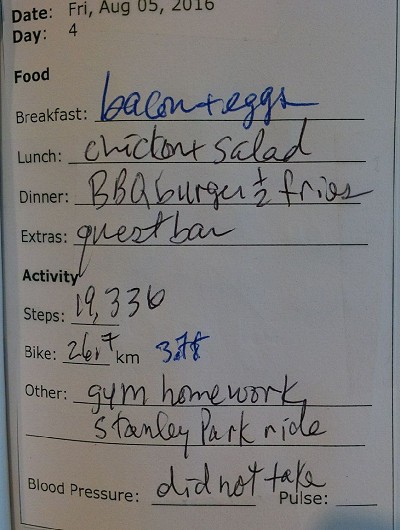 Date: Fri, Aug 05, 2016
Day: 4
Food
Breakfast: bacon + eggs
Lunch: chicken + salad
Dinner: BBQ burger ½ fries
Extras: quest bar
Activity
Steps: 19,336
Bike: 26.7 km
Other: gym homework,
Stanley Park ride
Blood Pressure: did not take Pulse: